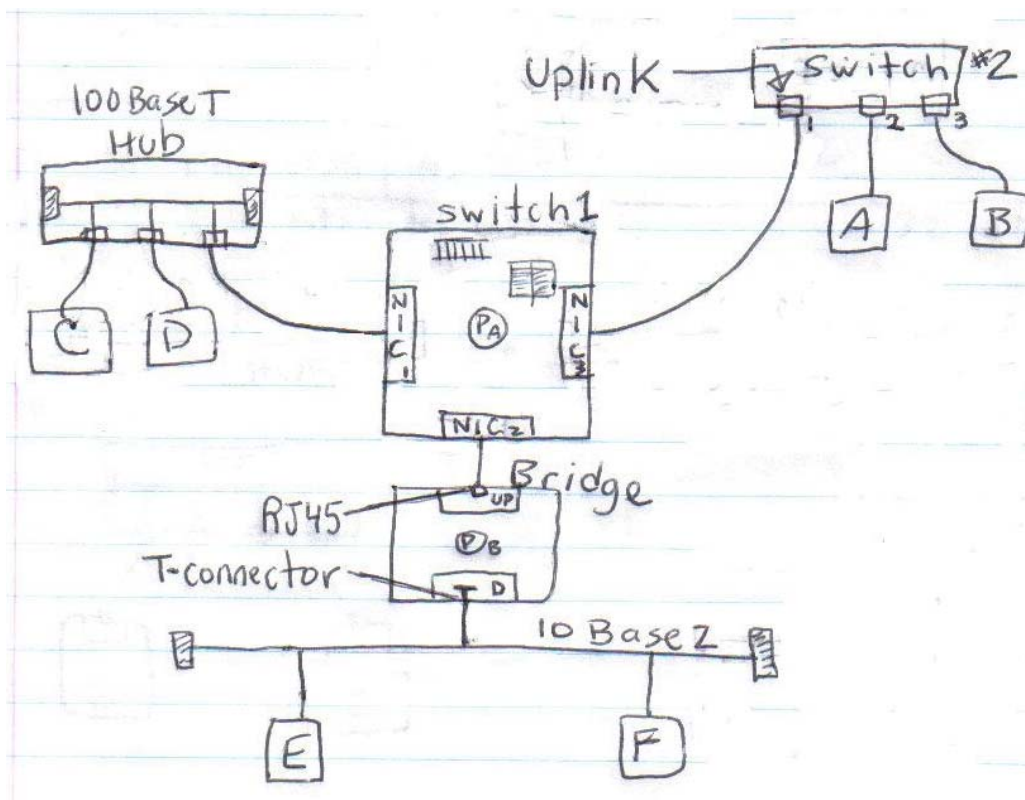 Uplink
Switch #2
1 2 3
100 Base T
Hub
A
B
switch 1
C
D
NIC 1
PA
NIC 3
NIC 2
Bridge
UP
RJ45
PB
T-connector
D
10 Base 2
E
F